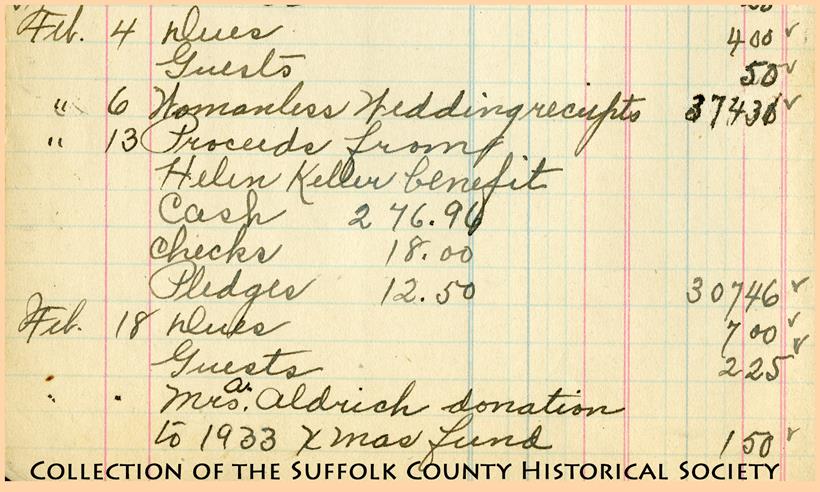 Feb. 4 Dues 400 ✓
Guests 50 ✓
" 6 Womanless Wedding receipts 37431 ✓
" 13 Proceeds from
Helen Keller benefit
Cash 276.96
checks 18.00
Pledges 12.50 30746 ✓
Feb. 18 Dues 700 ✓
Guests 225 ✓
" " Mrs. Aldrich donation
to 1933 Xmas fund 150 ✓
COLLECTION OF THE SUFFOLK COUNTY HISTORICAL SOCIETY